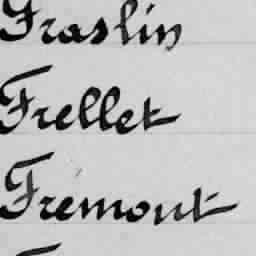 Fraslin
Frellet
Frémont